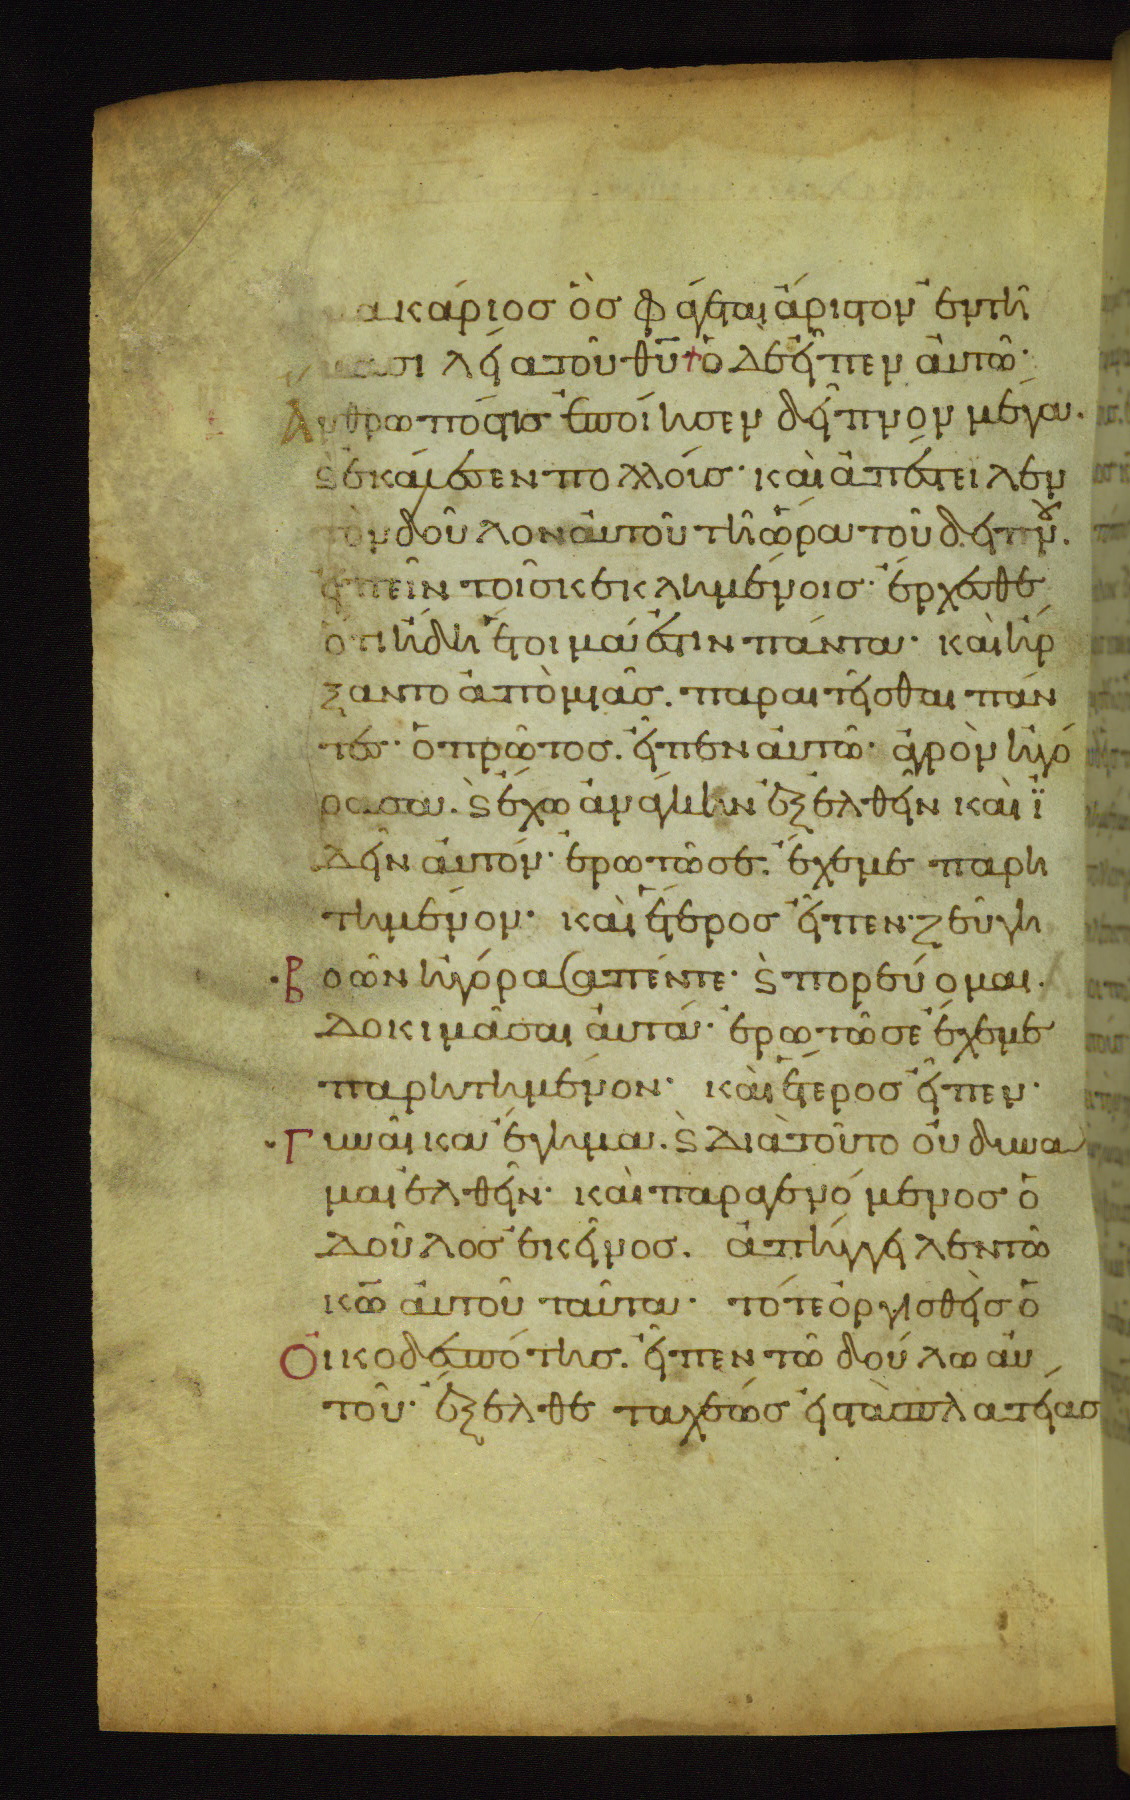 μακάριος ὃς φάγεται ἄριστον ἐν τῆ
βασιλεία τοῦ θῦ † ὁ δὲ εἶπεν ἀυτῶ·
Ἄνθρωπός τις ἐποίησεν δεῖπνον μέγα.
ϛ ἐκάλεσεν πολλούς· καὶ ἀπέστειλεν
τὸν δοῦλον ἀυτοῦ τῆ ὥρα τοῦ δείπνου.
εἰπεῖν τοῖς κεκλημένοις· ἔρχεσθε
ὅτι ἤδη ἕτοιμα ἐστιν πάντα· καὶ ἤρ
ξαντο ἀπὸ μιᾶς. παραιτεῖσθαι πάν
τες· ὁ πρῶτος. εἶπεν ἀυτῶ· ἀγρὸν ἠγό
ρασα. ϛ ἔχω ἀνάγκην ἐξελθεῖν καὶ ἰ
δεῖν ἀυτόν· ἐρωτῶ σε. ἔχε με παρη
τημένον· καὶ ἕτερος εἶπεν· ζεύγη
·Β βοῶν ἠγόρασα πέντε· ϛ πορεύομαι.
δοκιμᾶσαι ἀυτά· ἐρωτῶ σέ ἔχε με
παρητημένον· καὶ ἕτερος εἶπεν·
Γυναῖκα ἔγημα. ϛ διὰ τοῦτο οὐ δύνα
μαι ἐλθεῖν· καὶ παραγενόμενος ὁ
δοῦλος ἐκεῖνος. ἀπήγγειλεν τῶ
κῶ ἀυτοῦ ταῦτα· τότε ὀργισθεὶς ὁ
Οἰκοδεσπότης. εἶπεν τῶ δούλω ἀυ
τοῦ· ἔξελθε ταχέως εἰς τὰς πλατείας